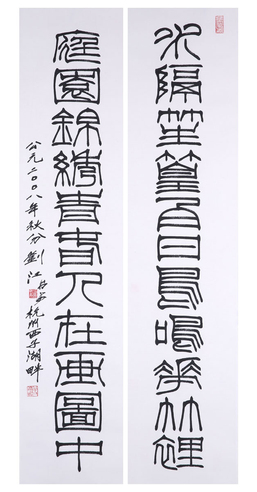 水隔笙簧白日鳥鳴華竹裡
庭園錦繡青春人在画圖中
公元二〇〇八年秋分劉江 杭州西子湖畔